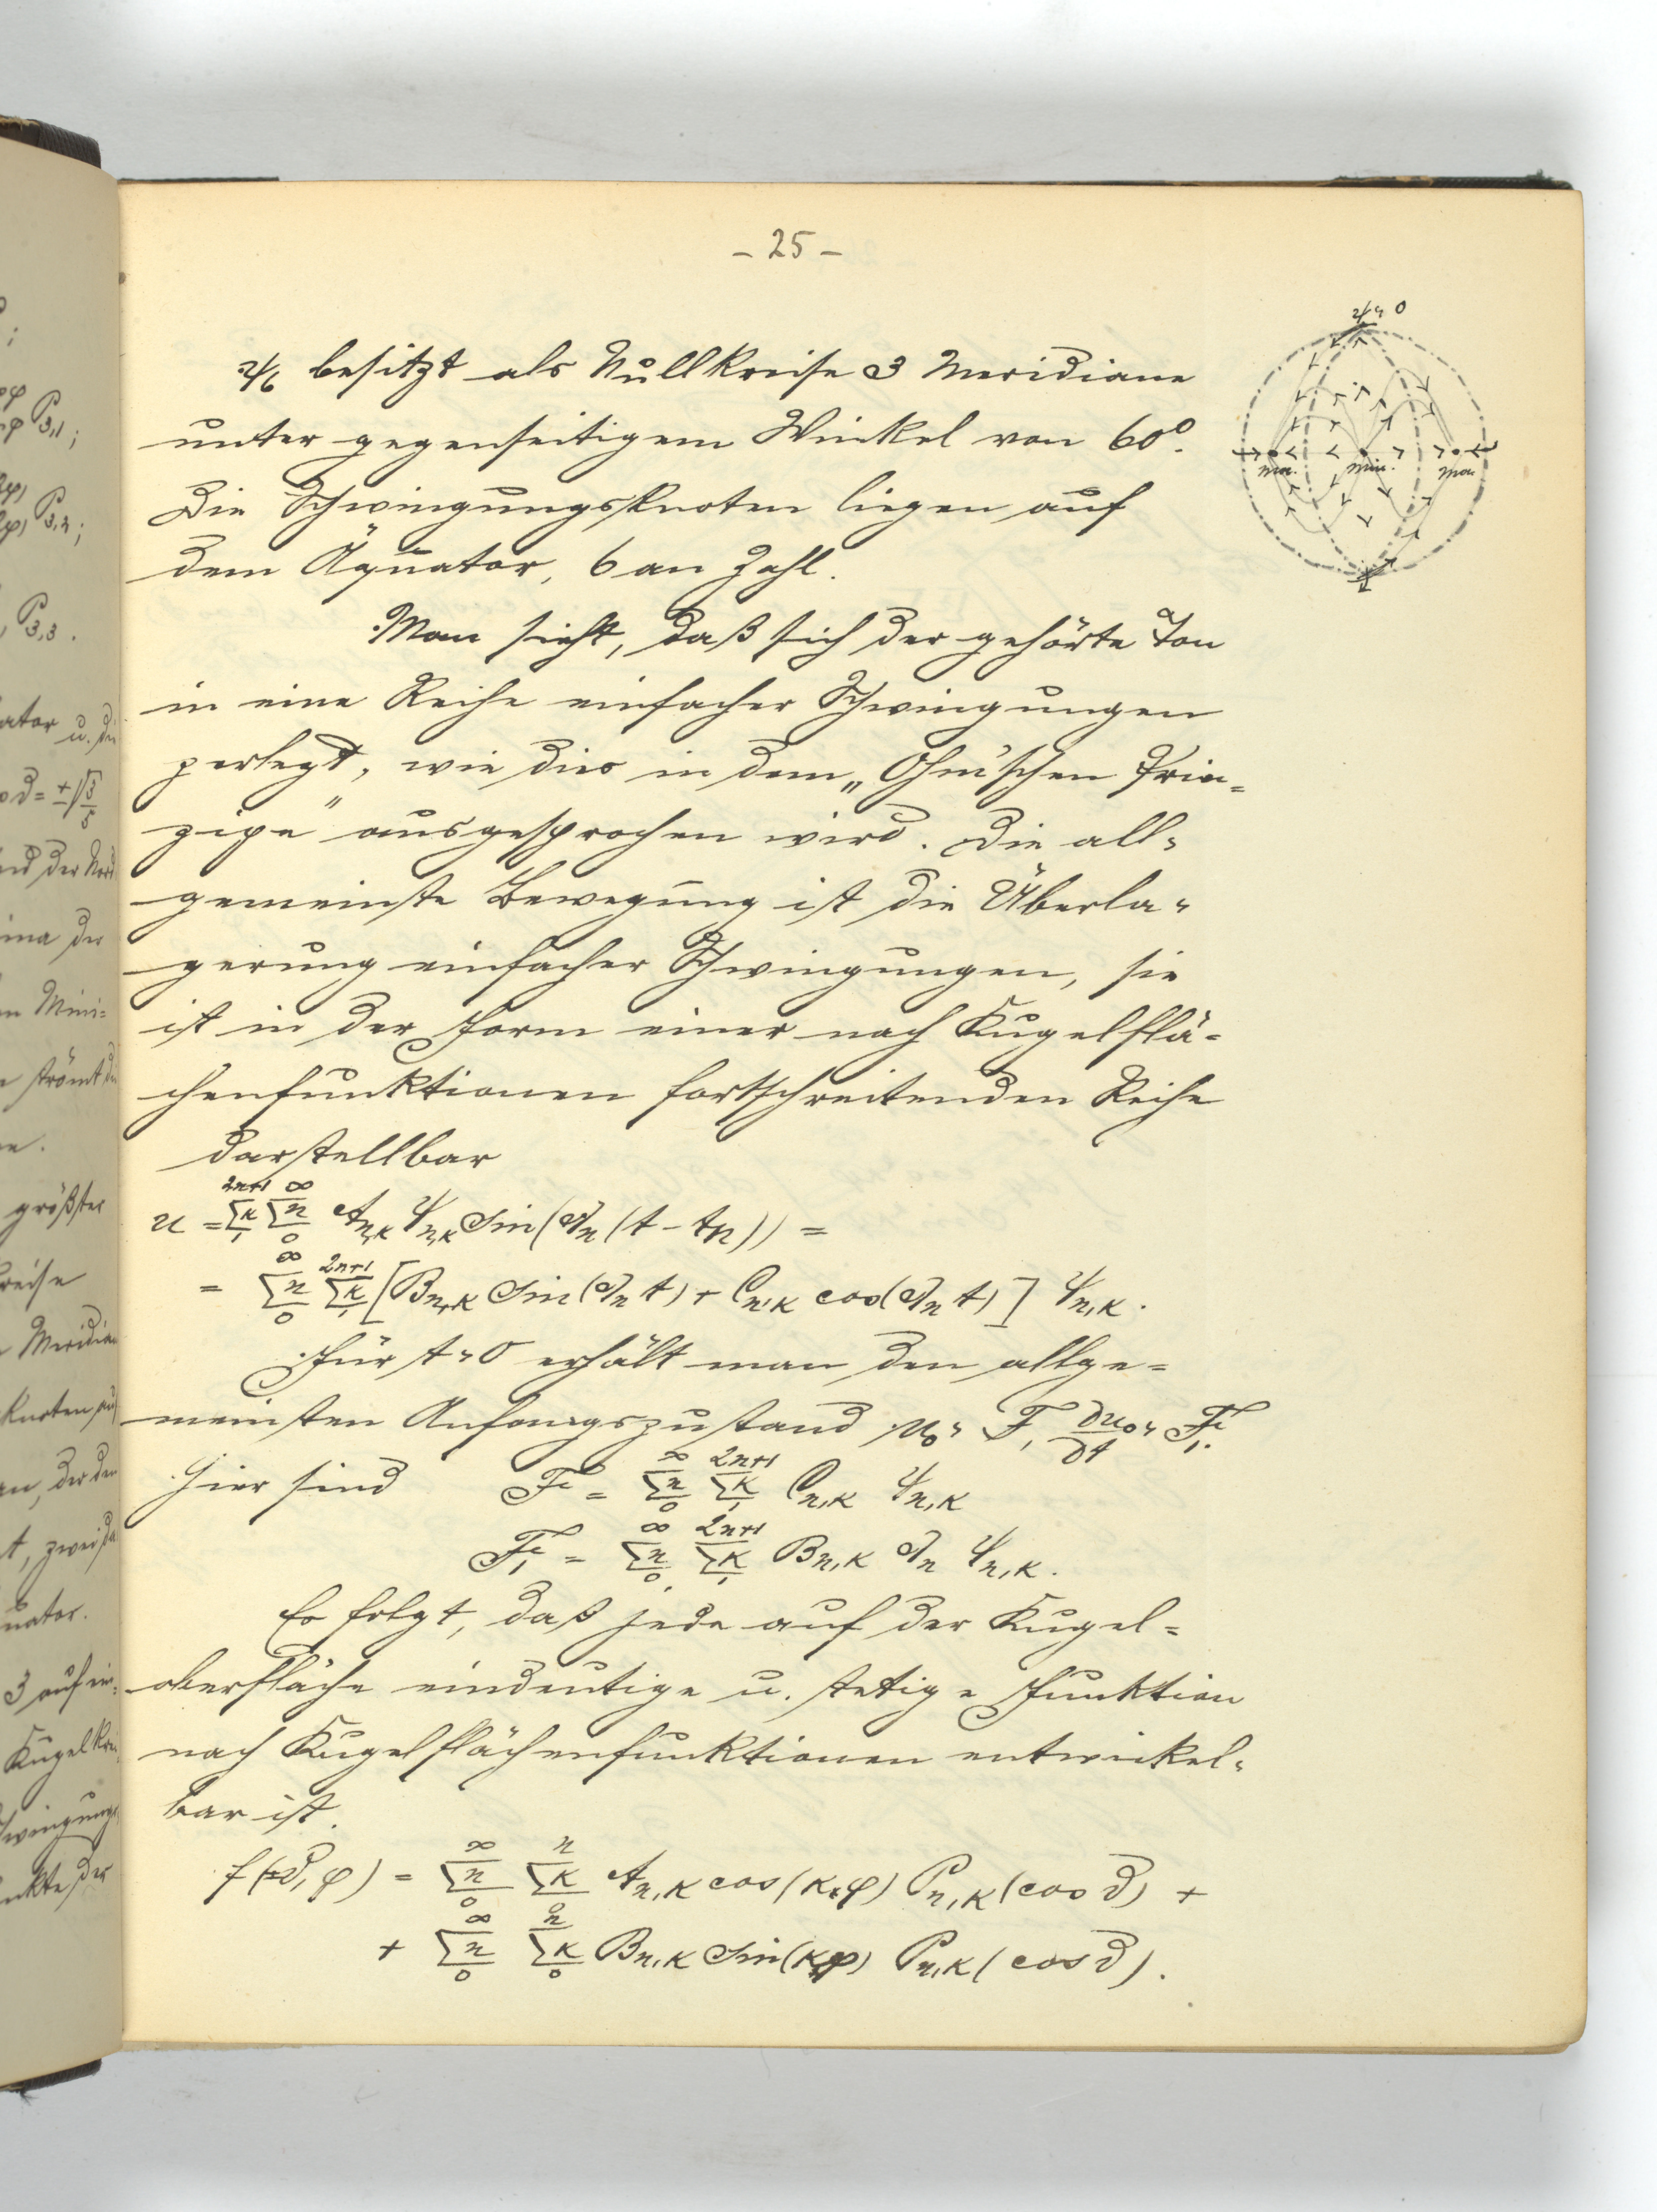 - 25 -
ψ=0
ψ₆ besitzt als Nullkreise 3 Meridiane
unter gegenseitigem Winkel von 60⁰.
Max. Min. Max
Die Schwingungsknoten liegen auf
dem Äquator, 6 an Zahl.
Man sieht, daß sich der gehörte Ton
in eine Reihe einfacher Schwingungen
zerlegt, wie dies in dem „Ohm'schen Prin=
zipe" ausgesprochen wird. Die all=
gemeinste Bewegung ist die Überla=
gerung einfacher Schwingungen, sie
ist in der Form einer nach Kugelflä=
chenfunktionen fortschreitenden Reihe
darstellbar
u = Σκ₁²ⁿ⁺¹ Σn₀^∞ A_{n,κ} ψ_{n,κ} sin(α_n (t - t_n)) =
= Σn₀^∞ Σκ₁²ⁿ⁺¹ [B_{n,κ} sin(α_n t) + C_{n,κ} cos(α_n t)] ψ_{n,κ}.
Für t=0 erhält man den allge=
meinsten Anfangszustand u₀ = F, ∂u₀/∂t = F₁.
Hier sind F = Σn₀^∞ Σκ₁²ⁿ⁺¹ C_{n,κ} ψ_{n,κ}
F₁ = Σn₀^∞ Σκ₁²ⁿ⁺¹ B_{n,κ} α_n ψ_{n,κ}.
Es folgt, daß jede auf der Kugel=
oberfläche eindeutige u. stetige Funktion
nach Kugelflächenfunktionen entwickel=
bar ist.
f(ϑ, φ) = Σn₀^∞ Σκ₀ⁿ A_{n,κ} cos(κφ) P_{n,κ}(cos ϑ) +
+ Σn₀^∞ Σκ₀ⁿ B_{n,κ} sin(κφ) P_{n,κ}(cos ϑ).